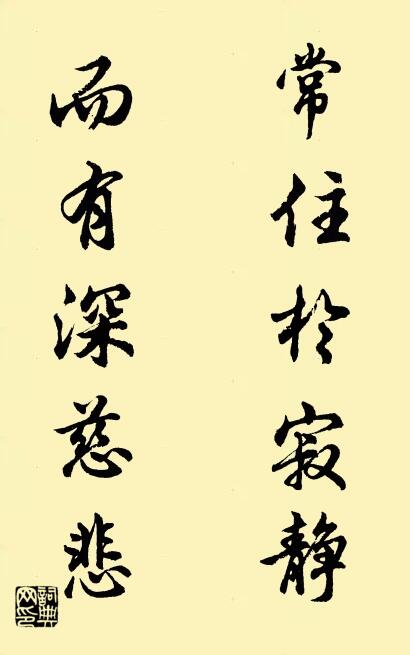 常住於寂静
而有深慈悲
詞典网印